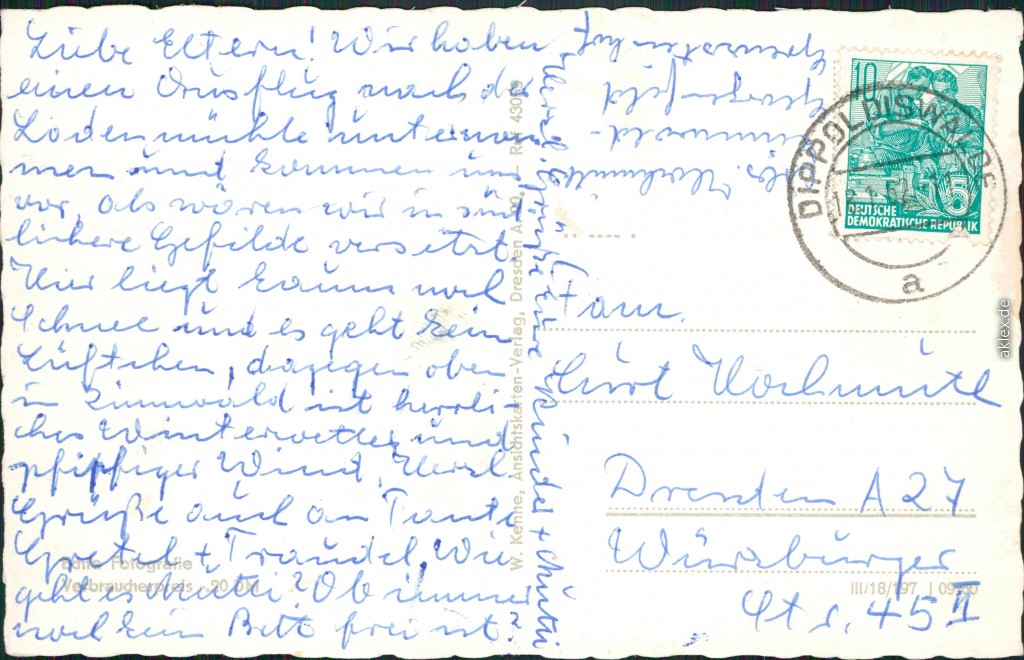 Liebe Eltern! Wir haben
einen Ausflug nach der
Lodenmühle unternom
men und kommen uns
vor, als wären wir in süd
lichere Gefilde versetzt.
Hier liegt kaum noch
Schnee und es geht kein
Lüftchen, dagegen oben
in Zinnwald ist herrli-
ches Winterwetter und
pfiffiger Wind. Herzl.
Grüße auch an Tante
Gretel + Traudel. Wie
geht es
Ob immer
noch kein Bett frei ist?
Herzl. Grüße Eure
Zinnwald-
Georgenfeld
Echte Fotografie
Verbraucherpreis -.20 DM
W. Kenne, Ansichtskarten-Verlag, Dresden
10
DEUTSCHE
DEMOKRATISCHE REPUBLIK
DIPPOLDISWALDE
a
Fam.
Kurt
Dresden A 27
Würzburger
Str. 45 II
III/18/197
aklex.de